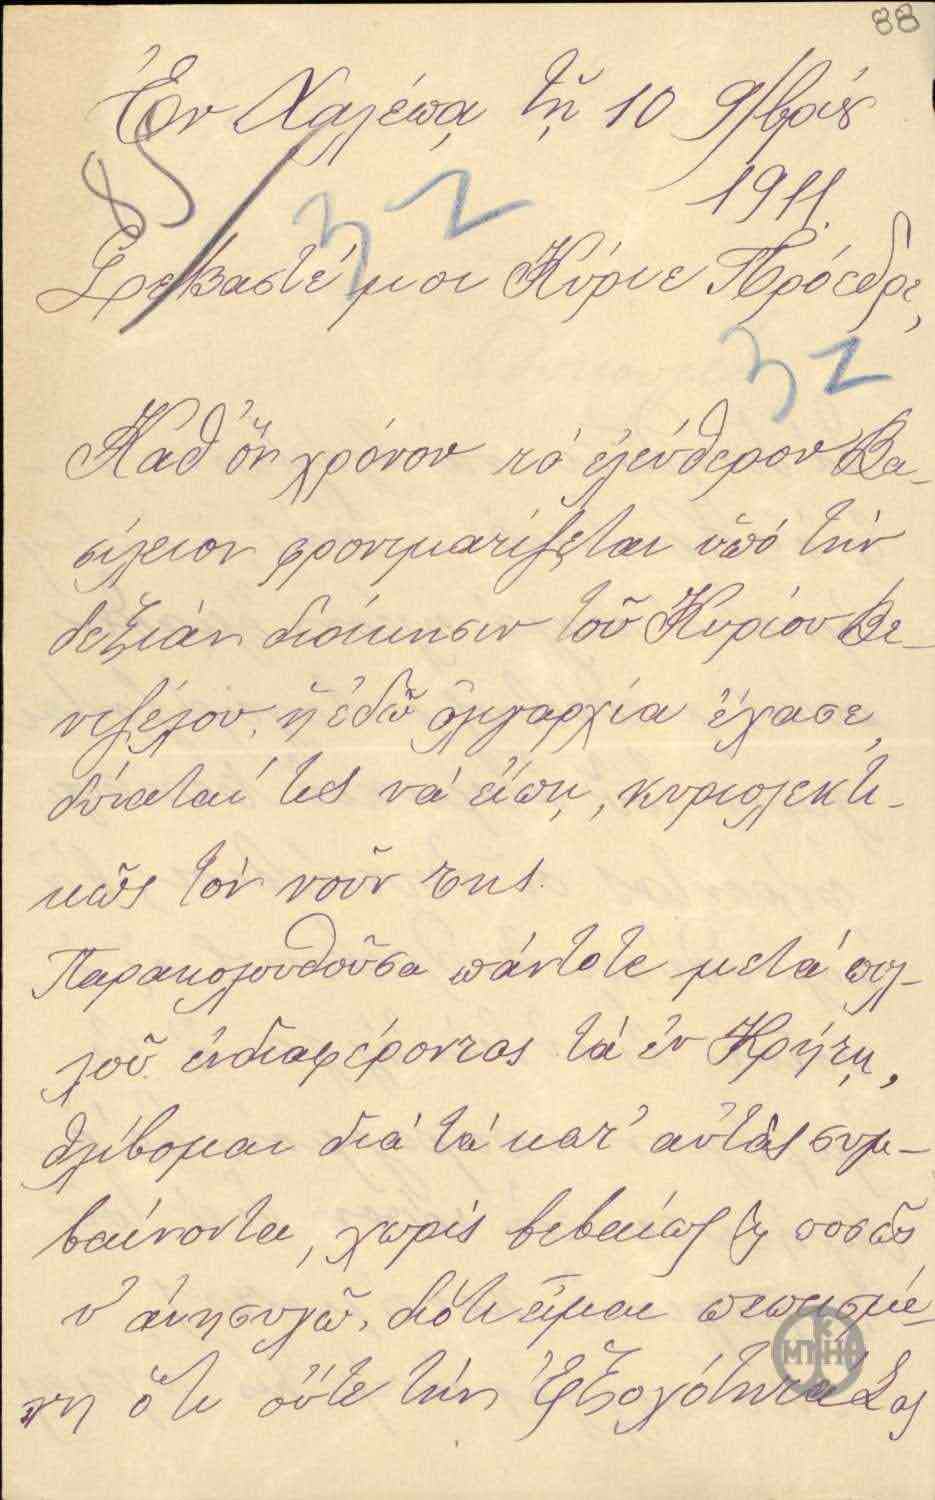 88
Ἐν Χαλέπᾳ τῇ 10 9/βρίου
1911
85
32
Σεβαστέ μοι Κύριε Πρόεδρε,
32
Καθ' ὃν χρόνον τὸ ἐλεύθερον Βα-
σίλειον φρονιματίζεται ὑπὸ τὴν
δεξιὰν διοίκησιν τοῦ Κυρίου Βε-
νιζέλου, ἡ ἐδῶ ὀλιγαρχία ἔχασε,
δύναταί τις νὰ εἴπῃ, κυριολεκτι-
κῶς τὸν νοῦν της.
Παρακολουθοῦσα πάντοτε μετὰ πολ-
λοῦ ἐνδιαφέροντος τὰ ἐν Κρήτῃ,
θλίβομαι διὰ τὰ κατ' αὐτὰς συμ-
βαίνοντα, χωρὶς βεβαίως ποσῶς
ν' ἀνησυχῶ, διότι εἶμαι πεπεισμέ-
νη ὅτι οὔτε τὴν Ἐξοχότητα Σας